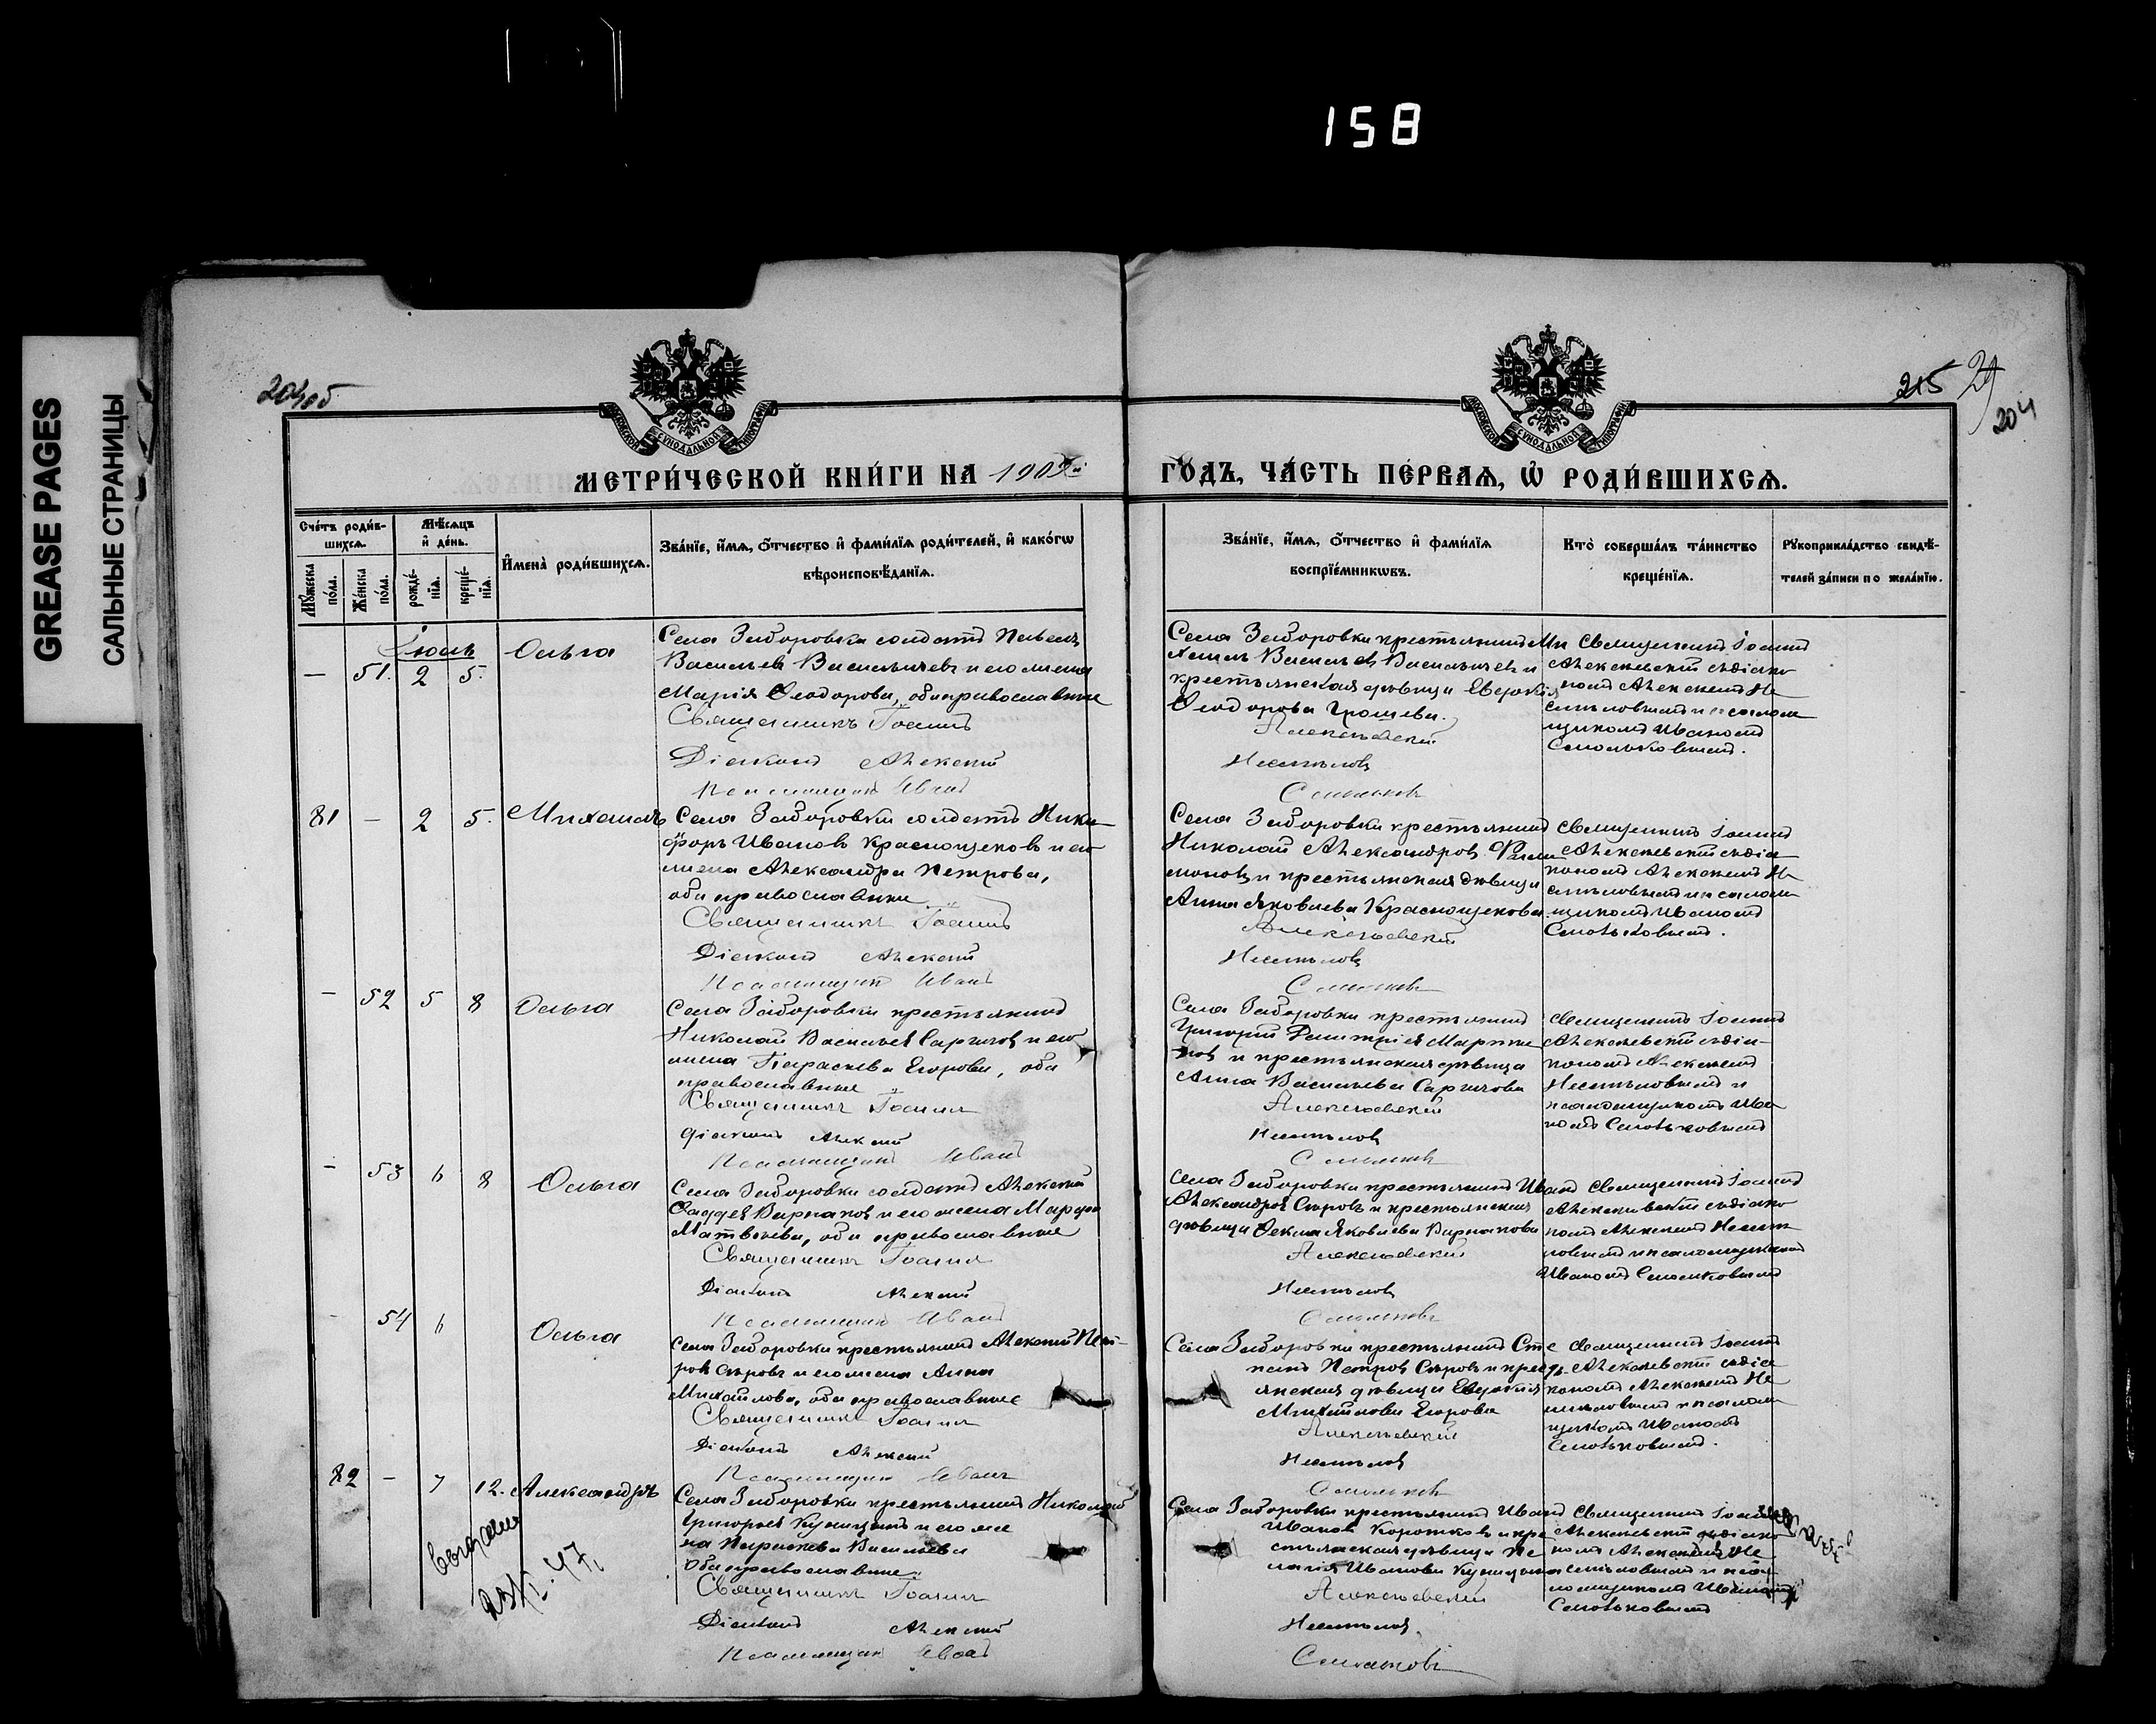 158
GREASE PAGES
САЛЬНЫЕ СТРАНИЦЫ
204об
215 29
204
МОСКОВСКОЙ СѴНОДАЛЬНОЙ ТИПОГРАФІИ
МОСКОВСКОЙ СѴНОДАЛЬНОЙ ТИПОГРАФІИ
МЕТРИ́ЧЕСКОЙ КНИ́ГИ НА 1902й
ГО́ДЪ, ЧА́СТЬ ПЕ́РВАѦ, Ѡ҆ РОДИ́ВШИХСѦ.
Сче́тъ роди́вшихсѧ.
Мꙋ́жеска по́ла.
Же́нска по́ла.
Мѣ́сѧцъ и҆ де́нь.
рожде́нїѧ.
креще́нїѧ.
И҆мена̀ роди́вшихсѧ.
Зва́нїе, и҆́мѧ, ѻ҆́тчество и҆ фами́лїѧ роди́телей, и҆ како́гѡ
вѣроисповѣ́данїѧ.
Зва́нїе, и҆́мѧ, ѻ҆́тчество и҆ фами́лїѧ
воспрїе́мникѡвъ.
Кто̀ соверша́лъ та́инство
креще́нїѧ.
Рꙋкоприкла́дство свидѣ́-
телей за́писи по жела́нїю.
Іюль
— 51. 2 5. Ольга
Села Заборовки солдатъ Павелъ
Васильевъ Васильичевъ и его жена
Марія Ѳеодорова, оба православные
Священникъ Іоаннъ
Діаконъ Алексій
Псаломщикъ Иванъ
Села Заборовки крестьянинъ Ми
хаилъ Васильевъ Васильичевъ и
крестьянская дѣвица Евдокія
Ѳеодорова Грошева.
Алексѣевскій
Несмѣловъ
Смольковъ
Священникъ Іоаннъ
Алексѣевскій съ діако
номъ Алексѣемъ Не
смѣловымъ и псалом
щикомъ Иваномъ
Смольковымъ.
81 — 2 5. Михаилъ
Села Заборовки солдатъ Ники
форъ Ивановъ Краснощековъ и его
жена Александра Петрова,
оба православные
Священникъ Іоаннъ
Діаконъ Алексій
Псаломщикъ Иванъ
Села Заборовки крестьянинъ
Николай Александровъ
и крестьянская дѣвица
Анна Яковлева Краснощекова
Алексѣевскій
Несмѣловъ
Смольковъ
Священникъ Іоаннъ
Алексѣевскій съ діа
кономъ Алексѣемъ Не
смѣловымъ и псалом
щикомъ Иваномъ
Смольковымъ.
— 52 5 8 Ольга
Села Заборовки крестьянинъ
Николай Васильевъ Саргичовъ и его
жена Параскева Егорова, оба
православные
Священникъ Іоаннъ
Діаконъ Алексій
Псаломщикъ Иванъ
Села Заборовки крестьянинъ
Григорій Димитріевъ Мартьяновъ
и крестьянская дѣвица
Анна Васильева Саргичова
Алексѣевскій
Несмѣловъ
Смольковъ
Священникъ Іоаннъ
Алексѣевскій съ діа-
кономъ Алексѣемъ
Несмѣловымъ и
псаломщикомъ Ива
номъ Смольковымъ
— 53 6 8 Ольга
Села Заборовки солдатъ Алексѣй
Ѳаддеевъ Варнаковъ и его жена Марѳа
Матвѣева, оба православные
Священникъ Іоаннъ
Діаконъ Алексій
Псаломщикъ Иванъ
Села Заборовки крестьянинъ Иванъ
Александровъ Сыровъ и крестьянская
дѣвица Ѳекла Яковлева Варнакова
Алексѣевскій
Несмѣловъ
Смольковъ
Священникъ Іоаннъ
Алексѣевскій съ діако
номъ Алексѣемъ Несмѣ
ловымъ и псаломщикомъ
Иваномъ Смольковымъ
- 54 6 Ольга
Села Заборовки крестьянинъ Алексѣй Пет-
ровъ Сыровъ и его жена Анна
Михайлова, оба православные
Священникъ Іоаннъ
Діаконъ Алексій
Псаломщикъ Иванъ
Села Заборовки крестьянинъ Сте
панъ Петровъ Сыровъ и кресть
янская дѣвица Евдокія
Михайлова Егорова
Алексѣевскій
Несмѣловъ
Смольковъ
Священникъ Іоаннъ
Алексѣевскій съ діа
кономъ Алексѣемъ Не
смѣловымъ и псалом
щикомъ Иваномъ
Смольковымъ.
82 — 7 12. Александръ
Села Заборовки крестьянинъ Николай
Григорьевъ Куницынъ и его же
на Параскева Васильева
оба православные
Священникъ Іоаннъ
Діаконъ Алексій
Псаломщикъ Иванъ
Села Заборовки крестьянинъ Иванъ
Ивановъ Коротковъ и кре
стьянская дѣвица Пе
лагія Иванова Куницына
Алексѣевскій
Несмѣловъ
Смольковъ
Священникъ Іоаннъ
Алексѣевскій съ діако
номъ Алексѣемъ Не
смѣловымъ и псал
ломщикомъ Иваномъ
Смольковымъ
47г.